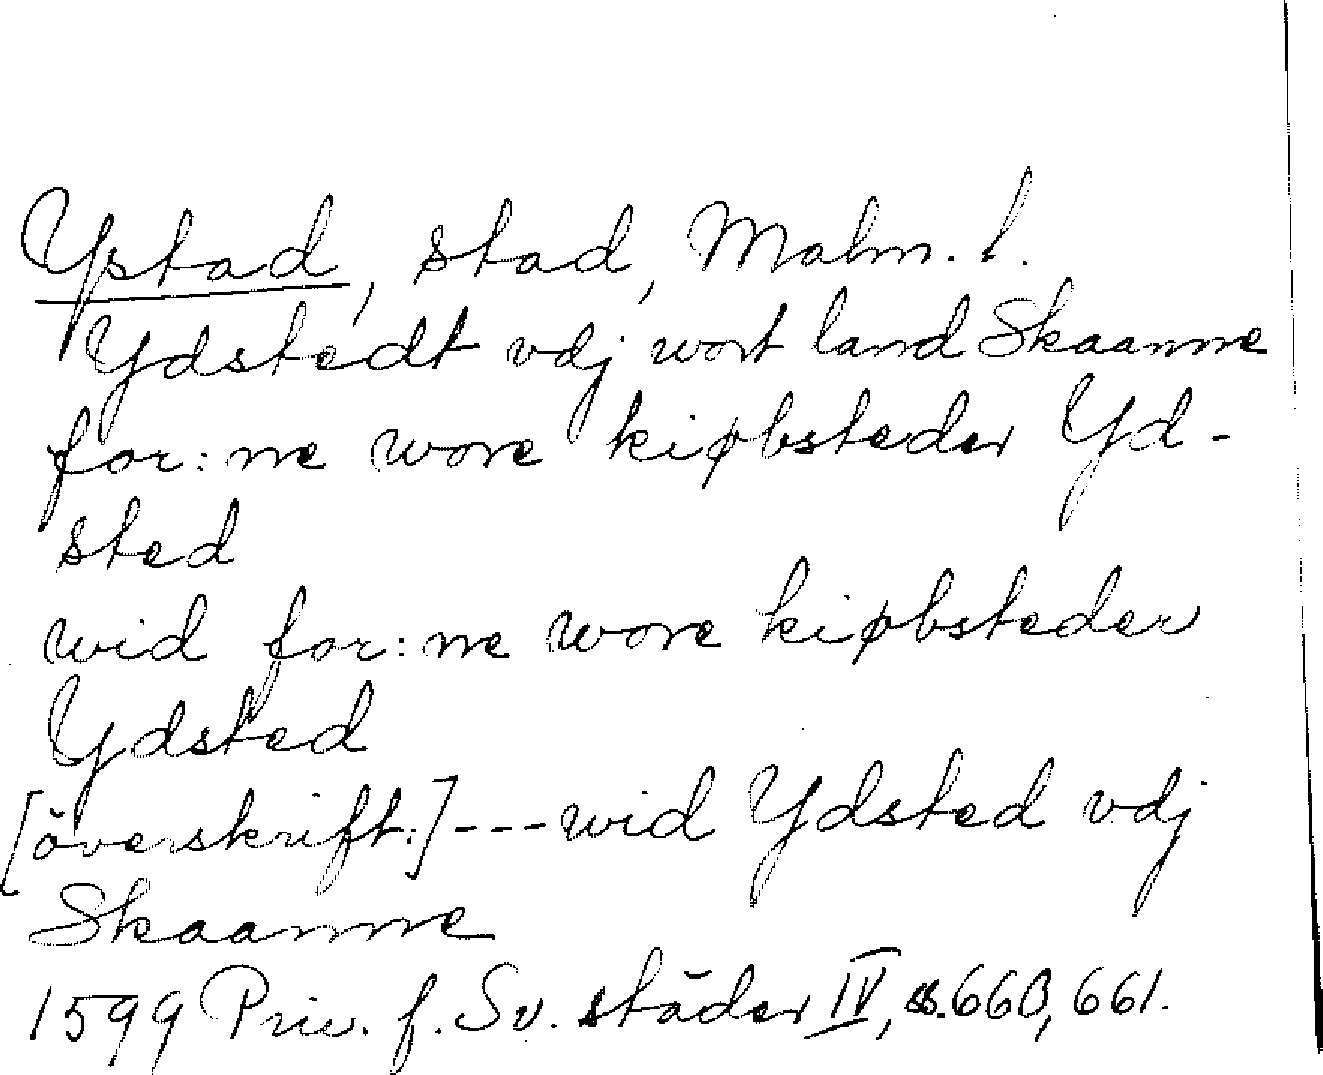 Ystad, stad, Malm. l.
Ydstedt vdj wort land Skaanne
for:ne wore kiøbsteder Yd-
sted
wid for:ne wore kiøbsteder
Ydsted
[överskrift:] --- wid Ydsted vdj
Skaanne
1599 Priv. f. Sv. städer IV, ss. 660, 661.